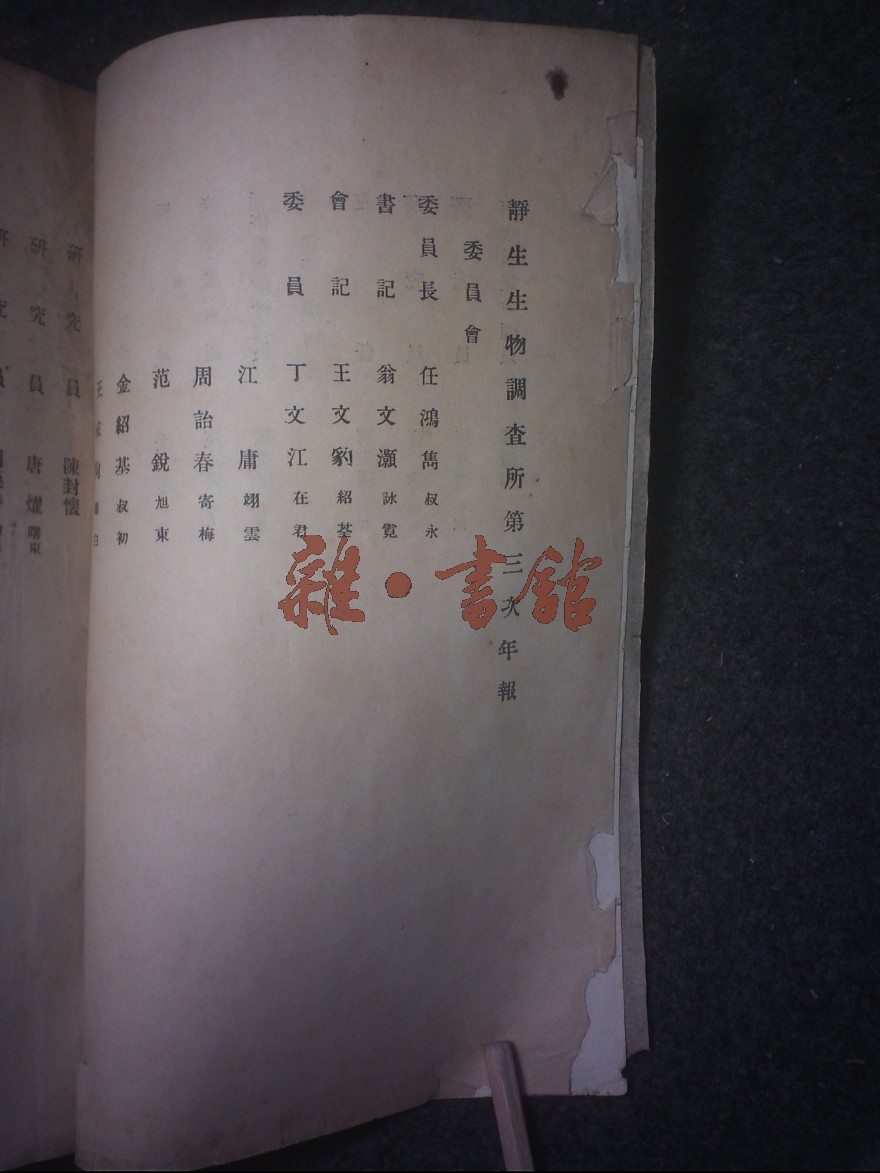 靜生生物調査所第三次年報
委員會
委員長 任鴻雋 叔永
書記 翁文灝 詠霓
會記 王文豹 紹荃
委員 丁文江 在君
江庸 翊雲
周詒春 寄梅
范銳 旭東
金紹基 叔初
王
研究員 陳封懷
研究員 唐燿 曙東
研究員
雜·書館